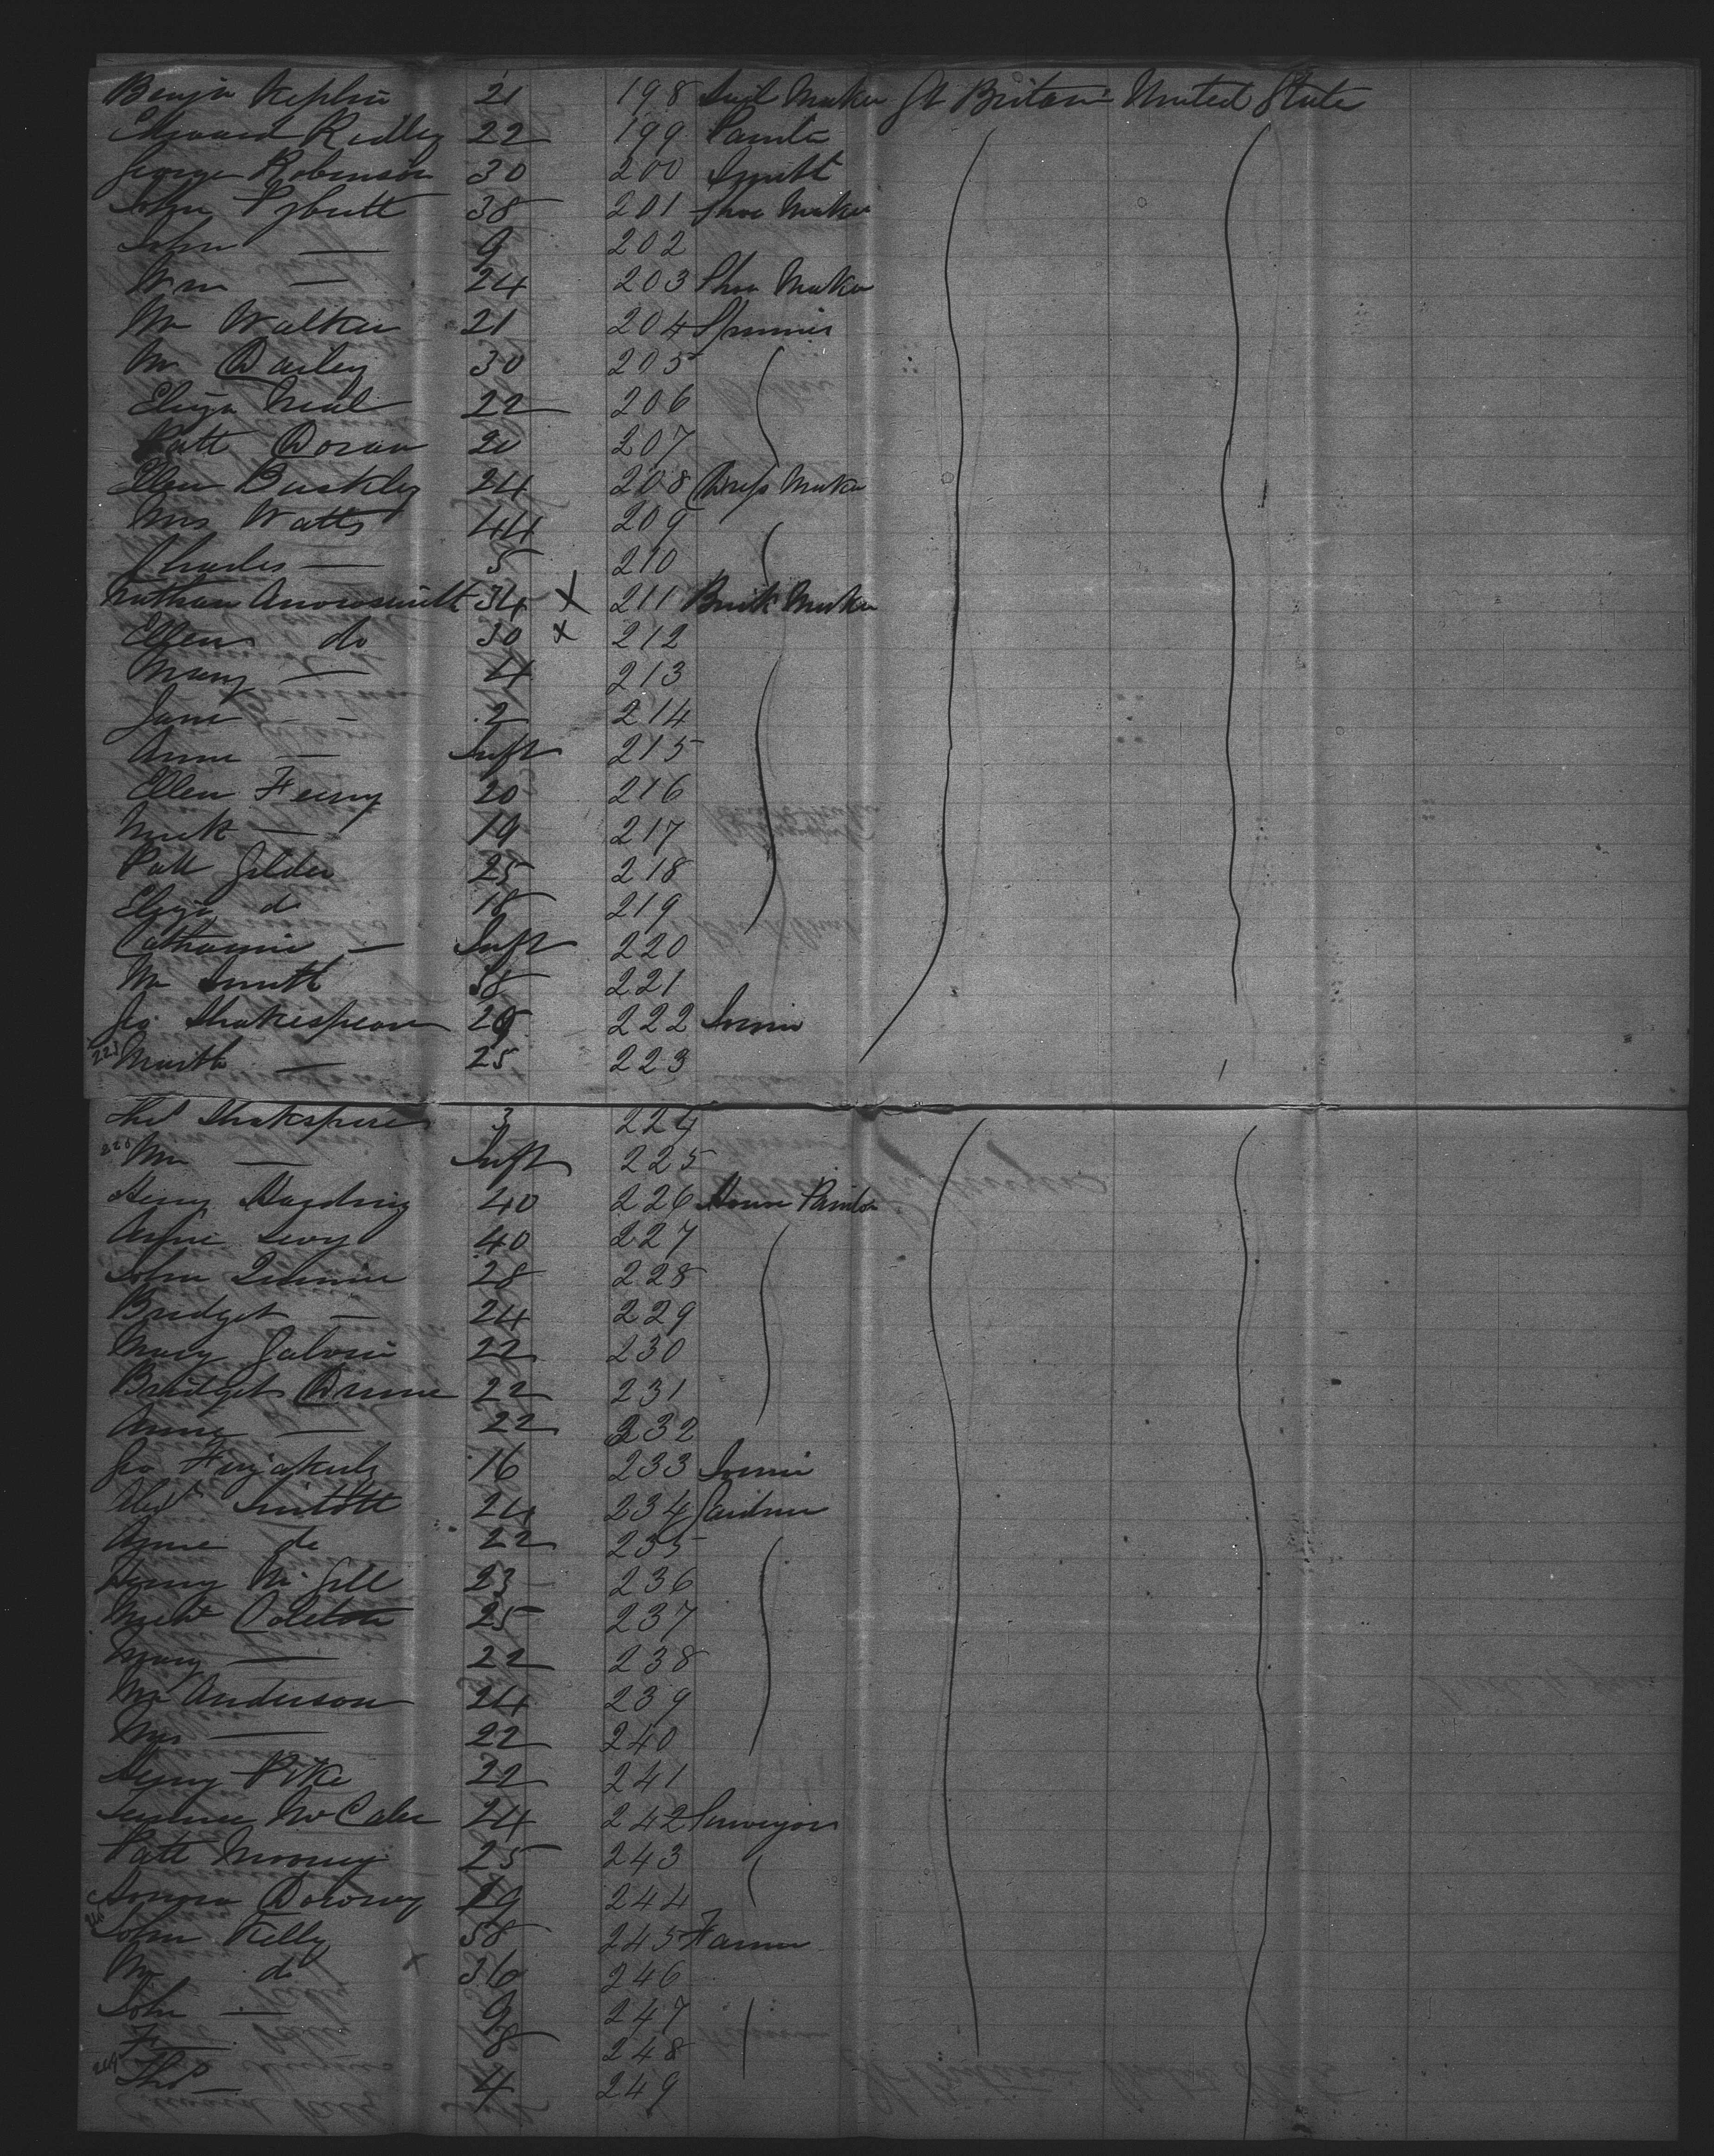 Benjn Keplin 21 198 Sail Maker Gt Britain United State
Edward Ridley 22 199 Painter
George Robinson 30 200 Smith
John Pybutt 38 201 Shoe Maker
John — 9 202
Wm — 24 203 Shoe Maker
Wm Walker 21 204 Spinner
Wm Dailey 30 205
Eliza Neal 22 206
Patt Doran 20 207
Ellen Buckley 24 208 Dress Maker
Mrs Watts 44 209
Charles — 5 210
Nathan Arrowsmith 34 X 211 Brick Maker
Ellen do 30 x 212
Mary — 4 213
Jane - - 2 214
Anne — Inft 215
Ellen Feeny 20 216
Mick — 19 217
Patt Gilder 25 218
Eliza do 18 219
Catharine — Inft 220
Wm Smith 38 221
Geo Shakespeare 29 222
Marth — 25 223
Thos Shakspere 3 224
Wm — Inft 225
Henry Harding 40 226 House Painter
Annie Levy 40 227
John Quinn 28 228
Bridget — 24 229
Mary Galvin 22 230
Bridget 22 231
Anne — 22 232
Geo 16 233
24 234 Gardner
Annie do 22 235
Henry McGill 23 236
25 237
Mary — 22 238
Wm Anderson 24 239
Mrs — 22 240
Henry Pike 22 241
McCabe 24 242 Surveyor
Patt Mooney 25 243
19 244
John Kelly 58 245 Farmer
do x 36 246
John — 9 247
8 248
Thos — 4 249